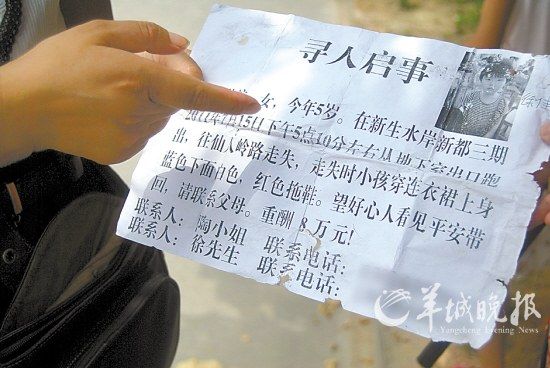 寻人启事
女，今年5岁。在新生水岸新都三期
2011年7月15日下午5点10分左右从地下室出口跑
出，往仙人岭路走失，走失时小孩穿连衣裙上身
蓝色下面白色，红色拖鞋。望好心人看见平安带
回，请联系父母。重酬8万元！
联系人：陶小姐 联系电话：
联系人：徐先生 联系电话：
羊城晚报
Yangcheng Evening News